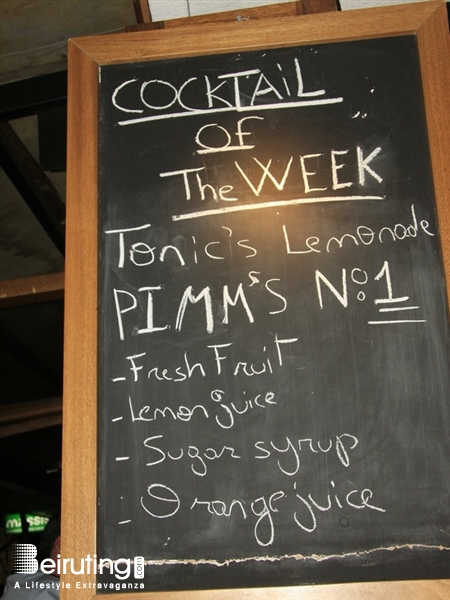 COCKTAiL
OF
The WEEK
Tonic's Lemonade
PIMM's No:1
- Fresh Fruit
- Lemon juice
- Sugar syrup
- Orange juice
Beiruting.com
A Lifestyle Extravaganza